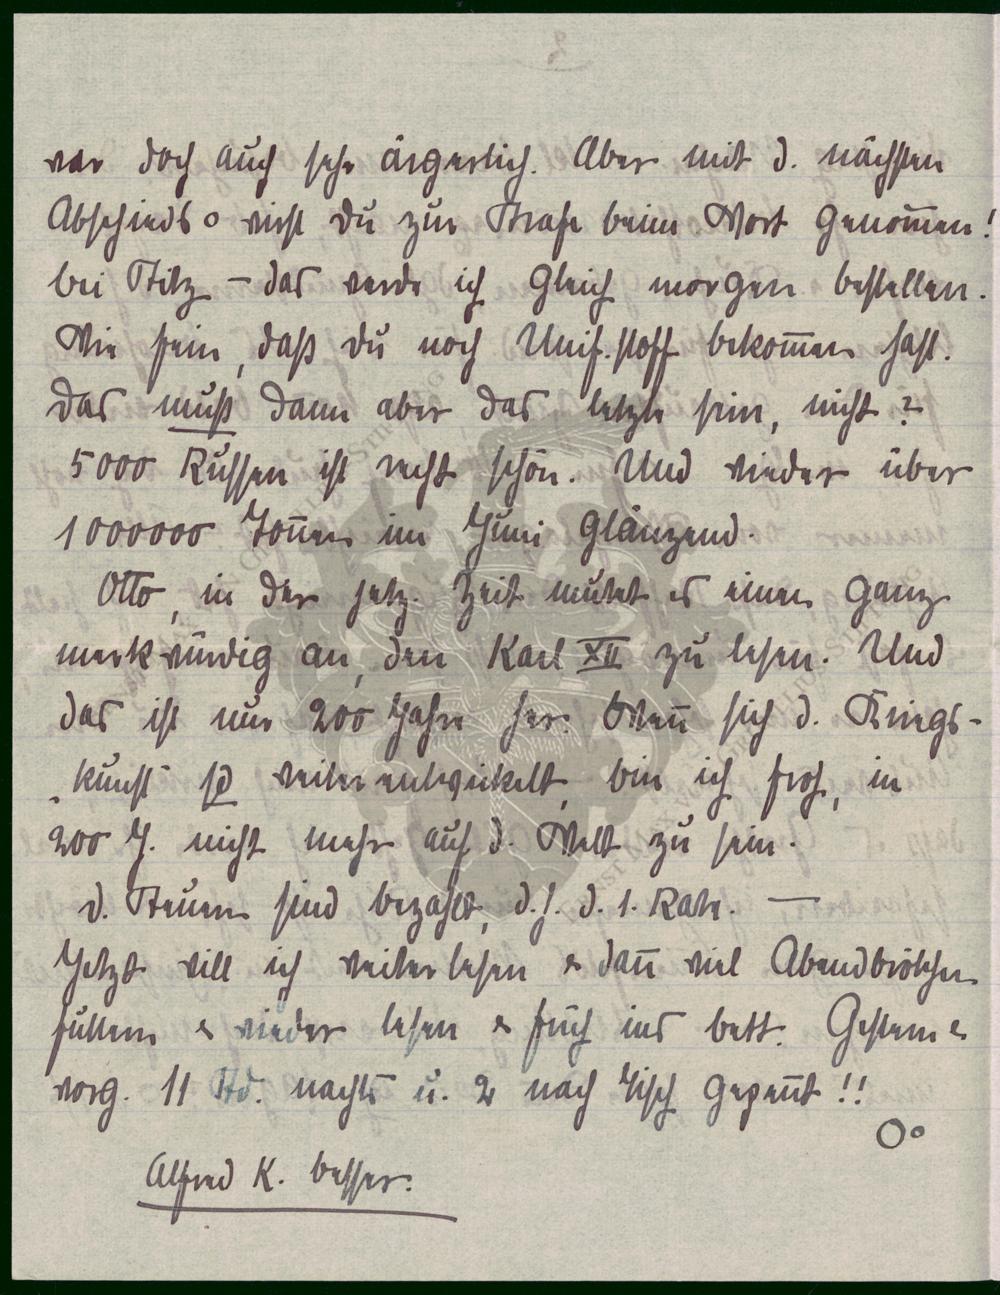 war doch auch sehr ärgerlich. Aber mit d. nächsten
Abschieds o wirst Du zur Strafe beim Wort genom̄en!
bei Titz – das werde ich gleich morgen bestellen.
Wie fein, daß Du noch Unif.stoff bekom̄en hast.
Das muß dann aber das letzte sein, nicht?
5000 Russen ist recht schön. Und wieder über
1000000 Ton̄en im Juni glänzend.
Otto, in der jetz. Zeit mutet es einen ganz
merkwürdig an, den Karl XII zu lesen. Und
das ist nur 200 Jahre her. Wen̄ sich d. Kriegs-
kunst so weiterentwickelt, bin ich froh, in
200 J. nicht mehr auf d. Welt zu sein.
d. Steuern sind bezahlt, d.h. d. 1. Rate. —
Jetzt will ich weiter lesen & dan̄ viel Abendbrötchen
futtern & wieder lesen & früh ins Bett. Gestern &
vorg. 11 Std. nachts u. 2 nach Tisch gepen̄t!!
Oo
Alfred K. besser.